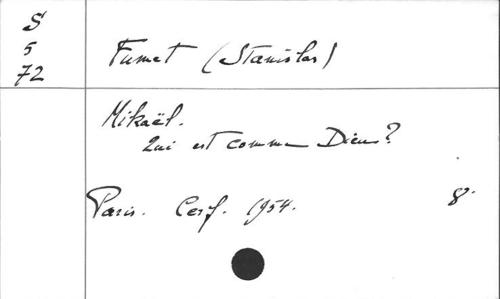 S
5
72
Fumet (Stanislas)
Mikaël.
Qui est comme Dieu?
Paris. Cerf. 1954. 8°.